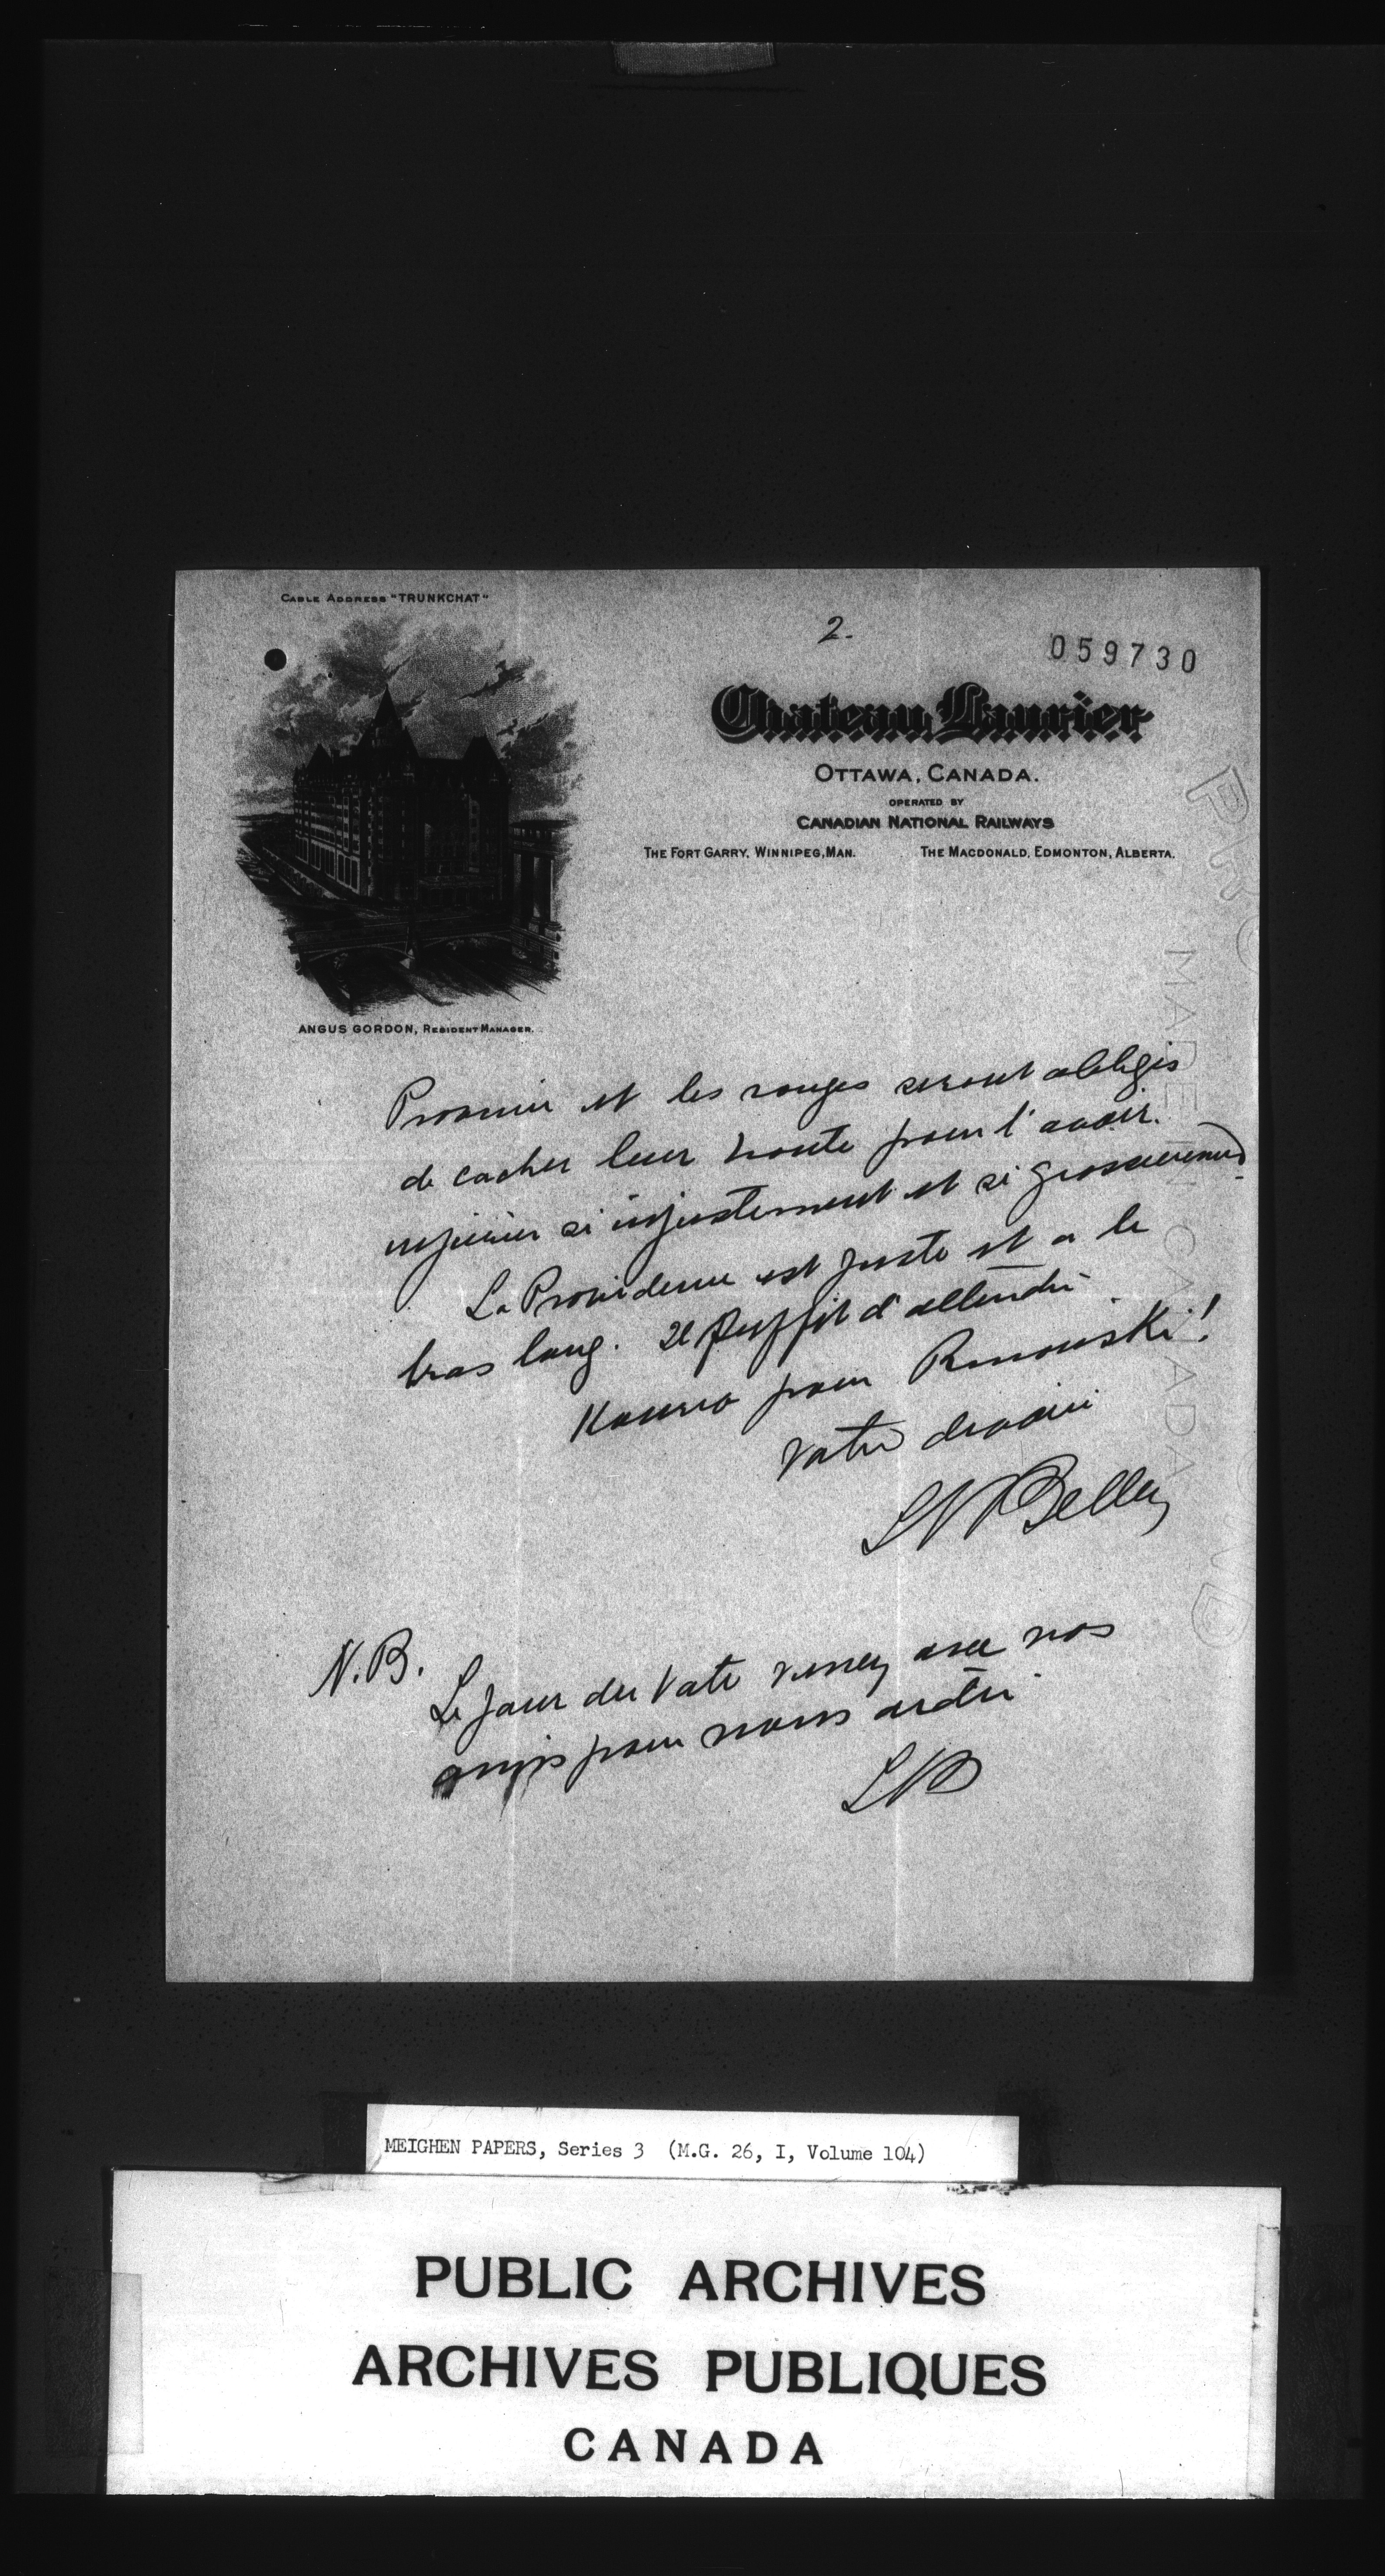 CABLE ADDRESS "TRUNKCHAT"
2.
059730
Chateau Laurier
OTTAWA, CANADA.
OPERATED BY
CANADIAN NATIONAL RAILWAYS
THE FORT GARRY, WINNIPEG, MAN. THE MACDONALD, EDMONTON, ALBERTA.
ANGUS GORDON, RESIDENT MANAGER.
et les rouges seront obligés
de cacher leur honte pour l'avoir
injurier si injustement et si grossierement
La Providence est juste et a le
bras long. Il suffit d'attendre
pour Rimouski!
Votre devoué
L N Belley
N.B.
Le jour du vote venez avec nos
amis pour nous aider
LNB
MADE IN CANADA
MEIGHEN PAPERS, Series 3 (M.G. 26, I, Volume 104)
PUBLIC ARCHIVES
ARCHIVES PUBLIQUES
CANADA